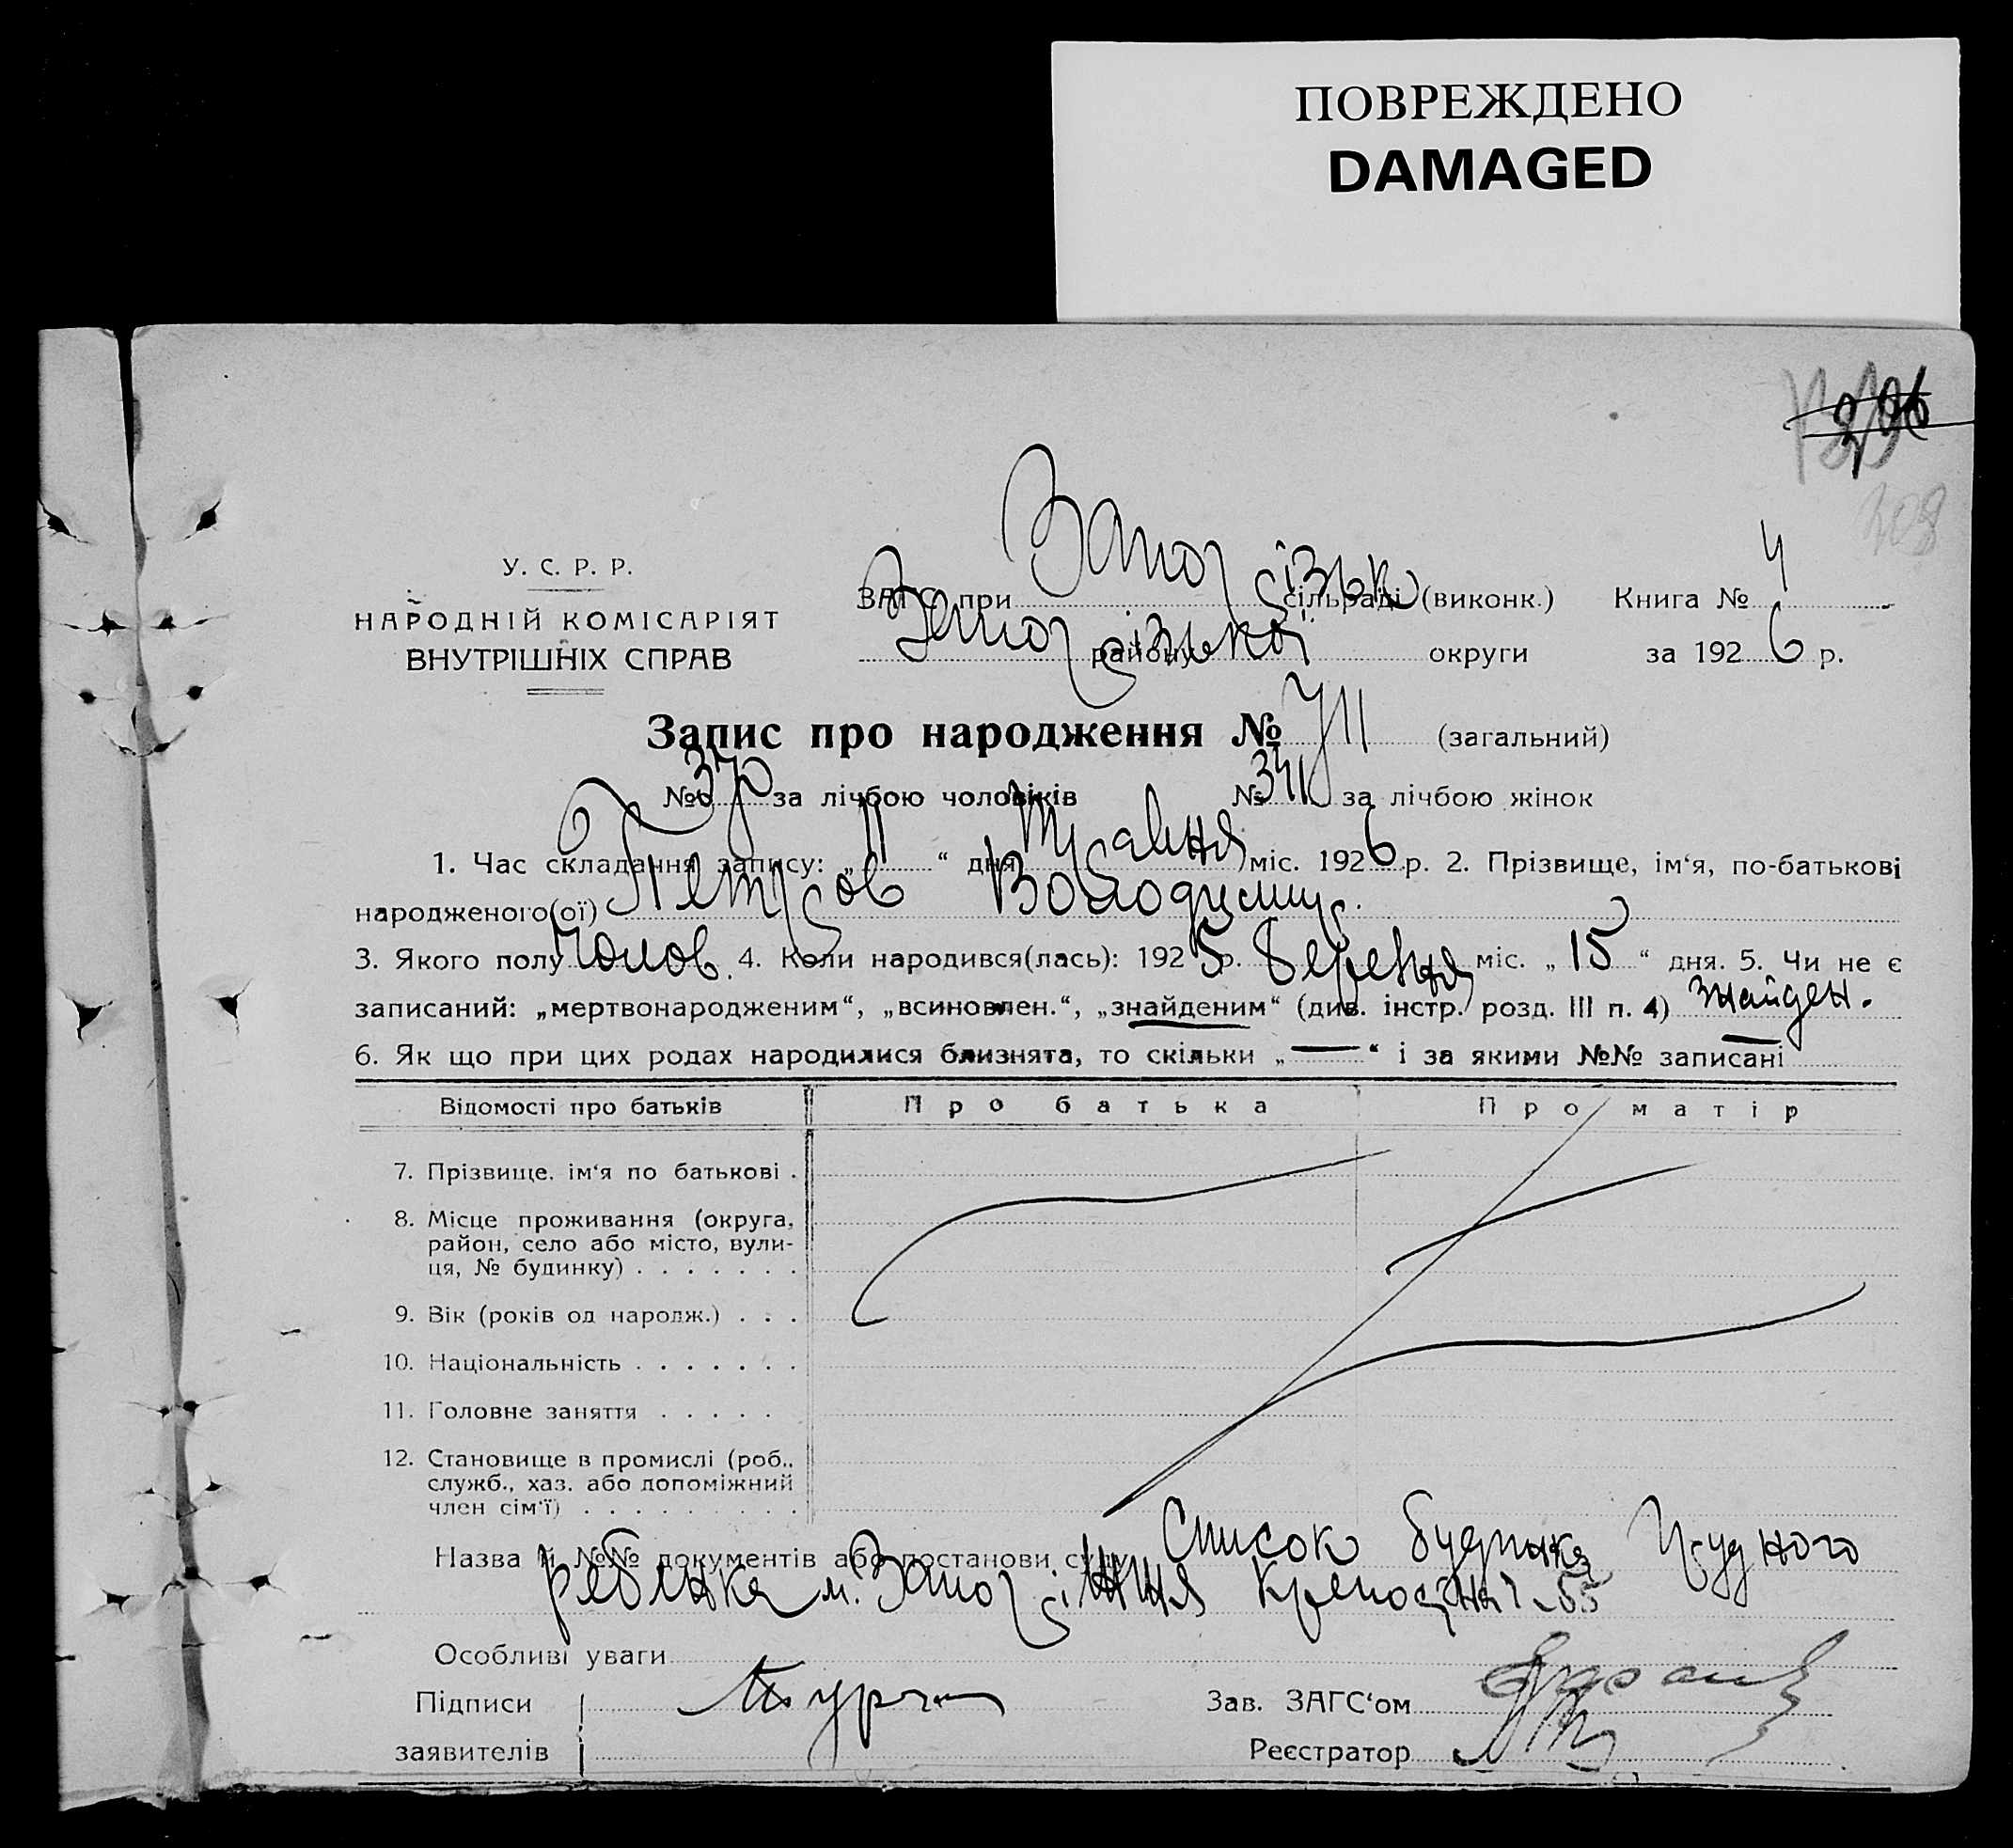 ПОВРЕЖДЕНО
DAMAGED
396
308
У. С. Р. Р.
НАРОДНІЙ КОМІСАРІЯТ
ВНУТРІШНІХ СПРАВ
ЗАГС при Запорізьк сільраді (виконк.) Книга № 4
Запорізької району округи за 1926 р.
Запис про народження № 711 (загальний)
№ 370 за лічбою чоловіків № 341 за лічбою жінок
1. Час складання запису: „11“ дня Травня міс. 1926 р. 2. Прізвище, ім‘я, по-батькові
народженого(ої) Петров Володимир.
3. Якого полу Чолов. 4. Коли народився(лась): 1925 р. Березня міс. „15“ дня. 5. Чи не є
записаний: „мертвонародженим“, „всиновлен.“, „знайденим“ (див. інстр. розд. III п. 4) знайден.
6. Як що при цих родах народилися близнята, то скільки „—“ і за якими №№ записані —
Відомості про батьків Про батька Про матір
7. Прізвище, ім‘я по батькові .
8. Місце проживання (округа,
район, село або місто, вули-
ця, № будинку) . . . . . . .
9. Вік (років од народж.) . . .
10. Національність . . . . . . .
11. Головне заняття . . . . .
12. Становище в промислі (роб.,
служб., хаз. або допоміжний
член сім‘ї) . . . . . . . . .
Назва й №№ документів або постанови суду Список будинка Грудного
ребенка м. Запоріжжя Крепосна 55
Особливі уваги
Підписи Зав. ЗАГС‘ом
заявителів Реєстратор